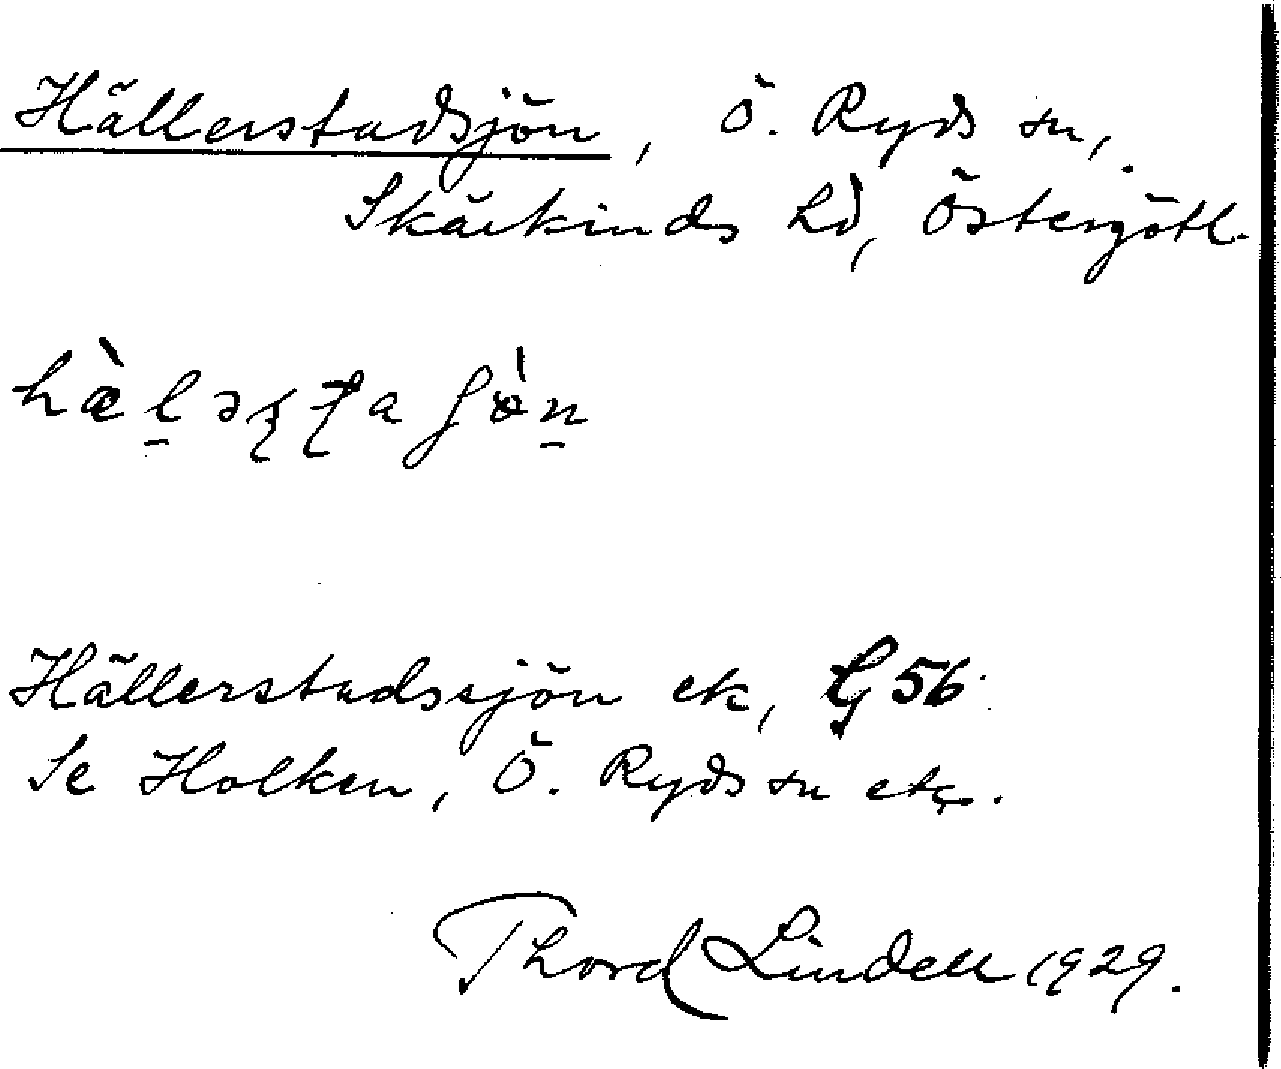 Hällerstadsjön, Ö. Ryds sn,
Skärkinds hd, Östergötl.
Hällerstadssjön ek, G 56.
Se Holken, Ö. Ryds sn etc.
Thord Lindell 1929.